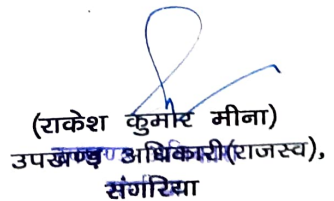 (राकेश कुमार मीना)
उपखण्ड अधिकारी(राजस्व),
संगरिया